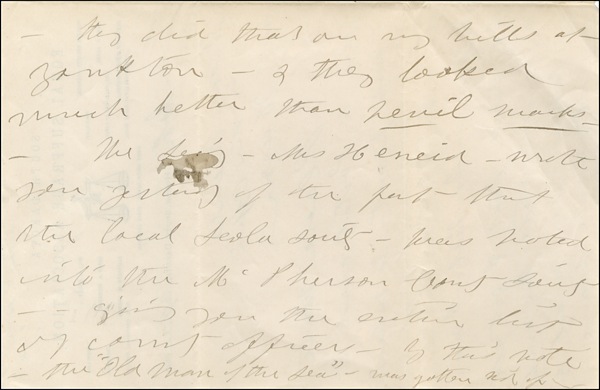 - they did that on my bills at
Yankton - & they looked
much better than pencil marks -
- The - Mrs - wrote
you of the fact that
the local Leola - was voted
into the Mc Pherson
- - giving you the entire list
of officers - By this vote
- the "Old man of the Sea" - was gotten rid of -